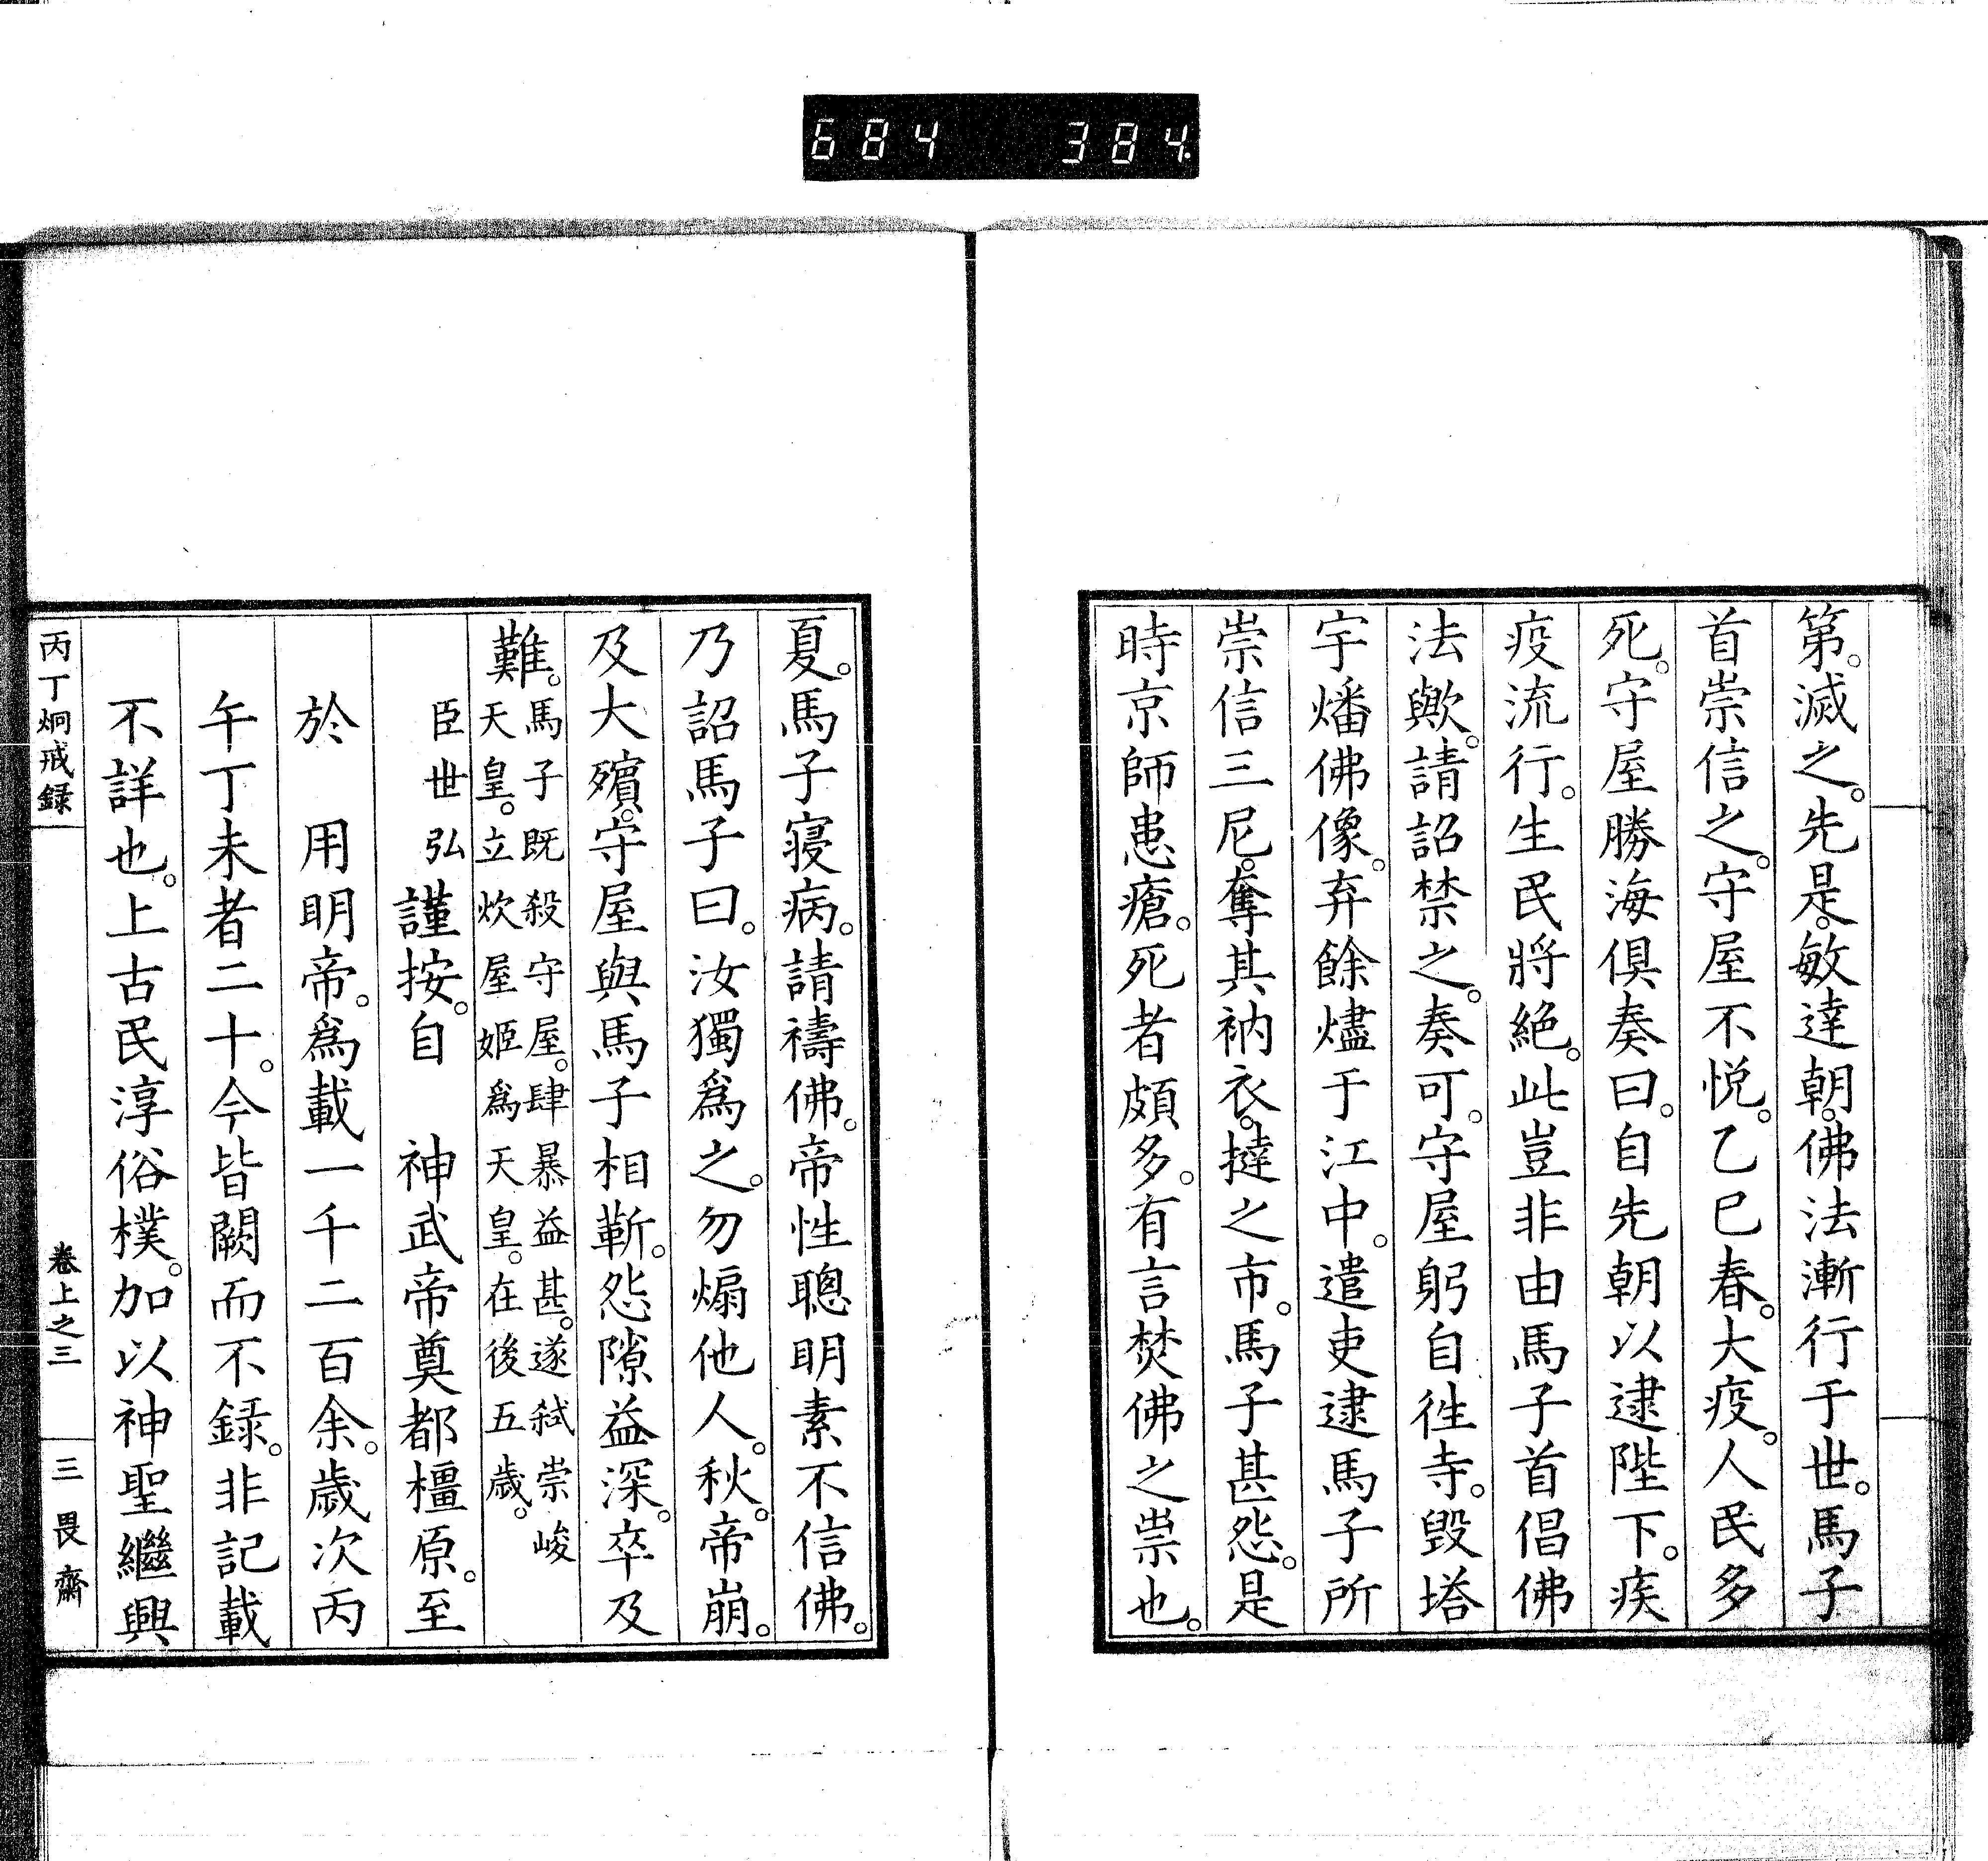 684 384.
第。滅之。先是。敏達朝。佛法漸行于世。馬子
首崇信之。守屋不悅。乙巳春。大疫。人民多
死。守屋勝海俱奏曰。自先朝以逮陛下。疾
疫流行。生民將絕。此豈非由馬子首倡佛
法歟。請詔禁之。奏可。守屋躬自徃寺。毀塔
宇燔佛像。弃餘燼于江中。遣吏逮馬子所
崇信三尼。奪其衲衣。撻之市。馬子甚怨。是
時京師患瘡。死者頗多。有言焚佛之祟也。
夏。馬子寢病。請禱佛。帝性聰明素不信佛。
乃詔馬子曰。汝獨爲之。勿煽他人。秋。帝崩。
及大殯。守屋與馬子相靳。怨隙益深。卒及
難。馬子既殺守屋。肆暴益甚。遂弑崇峻
天皇。立炊屋姬爲天皇。在後五歲。
臣世弘謹按。自 神武帝奠都橿原。至
於 用明帝。爲載一千二百余。歲次丙
午丁未者二十。今皆闕而不録。非記載
不詳也。上古民淳俗樸。加以神聖繼興
丙丁烱戒録 卷上之三 三 畏齋